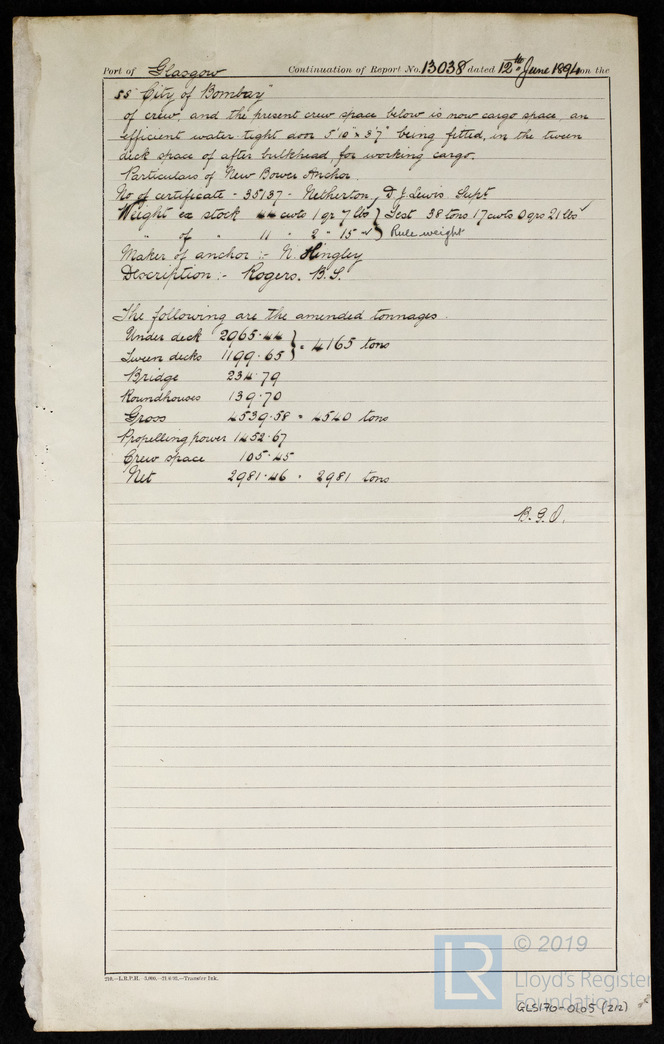 Port of Glasgow Continuation of Report No. 13038 dated 12th June 1894 on the
SS "City of Bombay"
of crew, and the present crew space below is now cargo space, an
efficient water tight door 5'10" x 3'7" being fitted, in the tween
deck space of after bulkhead, for working cargo.
Particulars of New Bower Anchor.
No of certificate - 35137 - Netherton, D. J. Lewis. Supt
Weight ex stock 44 cwts 1 qr 7 lbs } Test 38 tons 17 cwts 0 qrs 21 lbs
" of " 11 " 2 " 15 " } Rule weight
Maker of anchor :- N. Hingley
Description :- Rogers. B.S.
The following are the amended tonnages.
Under deck 2965.44 } = 4165 tons
Tween decks 1199.65
Bridge 234.79
Roundhouses 139.70
Gross 4539.58 = 4540 tons
Propelling power 1452.67
Crew space 105.45
Net 2981.46 = 2981 tons
210.—L.R.P.H.
Transfer Ink.
LR © 2019
Lloyd's Register
Foundation
GLS170-0105 (2/2)